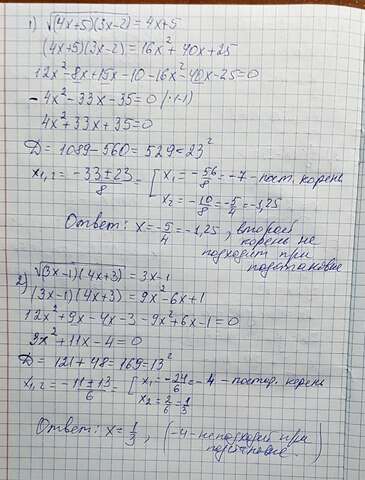 1) √(4x+5)(3x-2) = 4x+5
(4x+5)(3x-2) = 16x² + 40x + 25
12x² - 8x + 15x - 10 - 16x² - 40x - 25 = 0
- 4x² - 33x - 35 = 0 /·(-1)
4x² + 33x + 35 = 0
D = 1089 - 560 = 529 = 23²
x1,2 = -33 ± 23 / 8 = [ x1 = -56/8 = -7 - пост. корень
x2 = -10/8 = -5/4 = -1,25
Ответ: x = -5/4 = -1,25, второй
корень не
подходит при
подстановке
2) √(3x-1)(4x+3) = 3x-1
(3x-1)(4x+3) = 9x² - 6x + 1
12x² + 9x - 4x - 3 - 9x² + 6x - 1 = 0
3x² + 11x - 4 = 0
D = 121 + 48 = 169 = 13²
x1,2 = -11 ± 13 / 6 = [ x1 = -24/6 = -4 - постор. корень
x2 = 2/6 = 1/3
Ответ: x = 1/3, (-4 - не подходит при
подстановке)